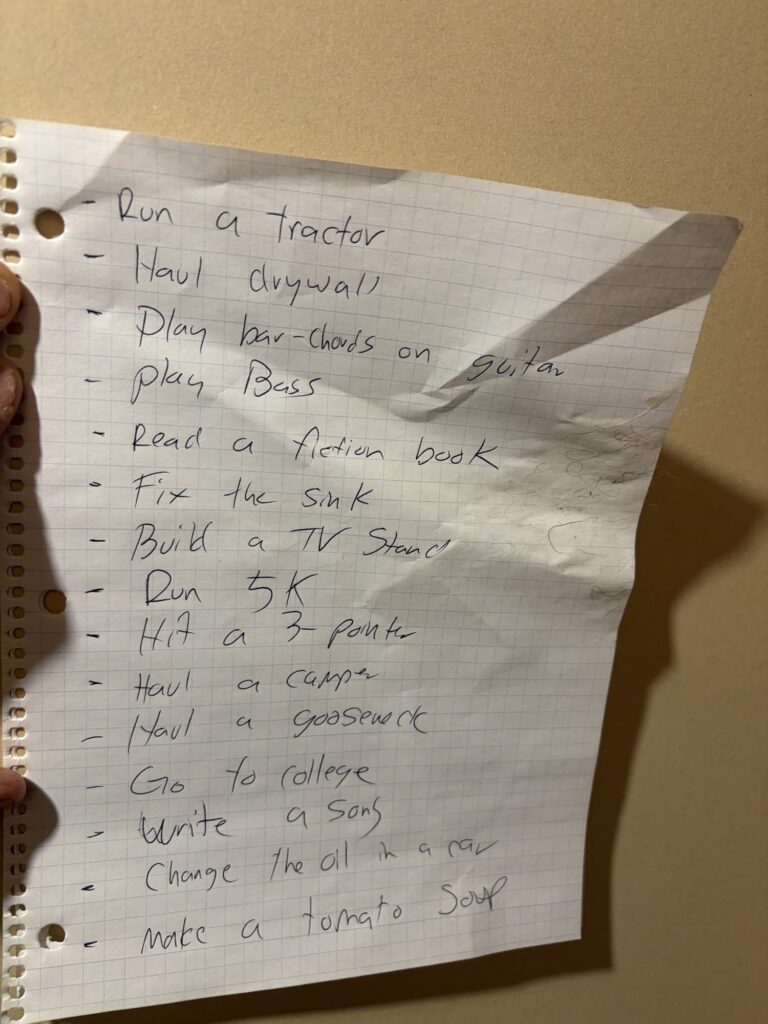 - Run a tractor
- Haul drywall
- Play bar-chords on guitar
- Play Bass
- Read a fiction book
- Fix the sink
- Build a TV Stand
- Run 5K
- Hit a 3-pointer
- Haul a camper
- Haul a gooseneck
- Go to college
- Write a song
- Change the oil in a car
- Make a tomato soup